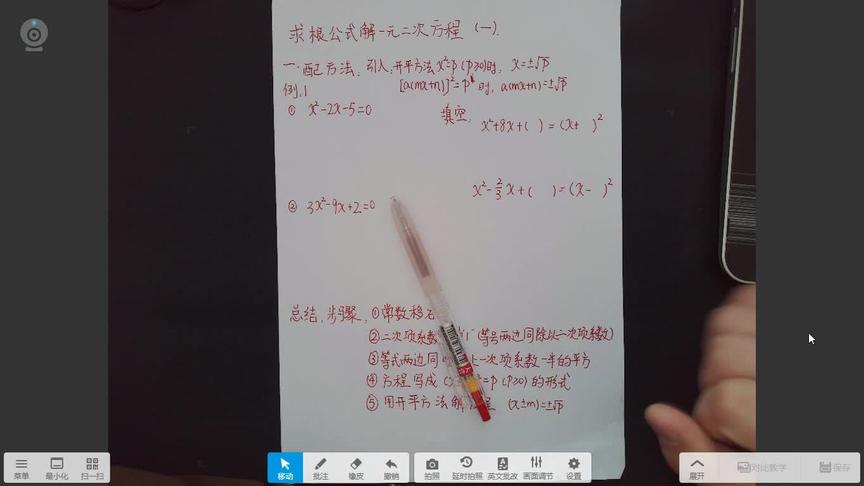 求根公式解一元二次方程 (一).
一.配方法. 引入:开平方法 x²=p (p≥0)时, x=±√p
例.1 [a(mx+n)]²=p 时, a(mx+n)=±√p
① x²-2x-5=0
填空. x²+8x+( )=(x+ )²
x²-2/3x+( )=(x- )²
② 3x²-9x+2=0
总结.步骤. ①常数移
②二次项系数 "1" (等号两边同除以二次项系数)
③等式两边同 上一次项系数一半的平方
④方程写成 (x ²=p (p≥0) 的形式
⑤用开平方法解 (x±m)=±√p
菜单 最小化 扫一扫 移动 批注 橡皮 撤销 拍照 延时拍照 英文批改 画面调节 设置 展开 对比教学 保存